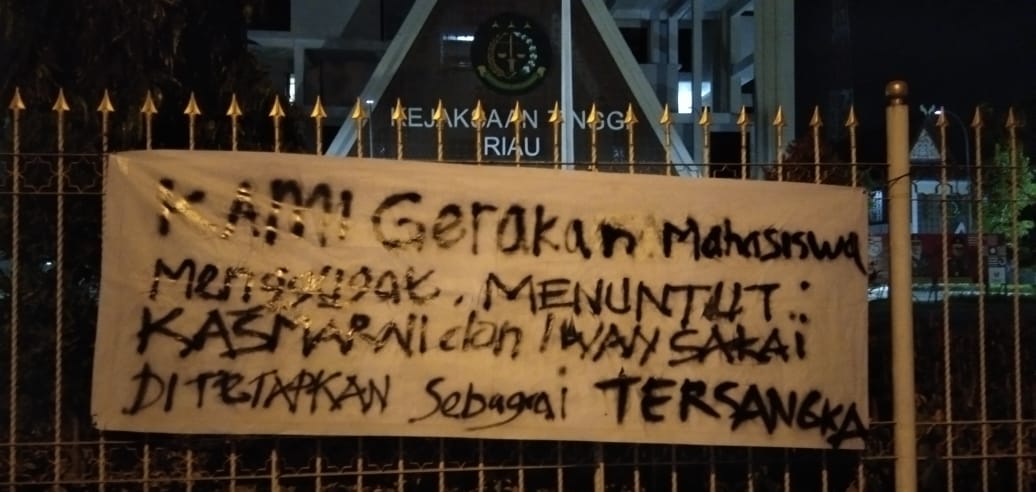 KEJAKSAAN TINGGI
RIAU
KAMI Gerakan Mahasiswa
Menggugat, MENUNTUT :
KASMARNI dan IWAN SAKAI
DITETAPKAN Sebagai TERSANGKA